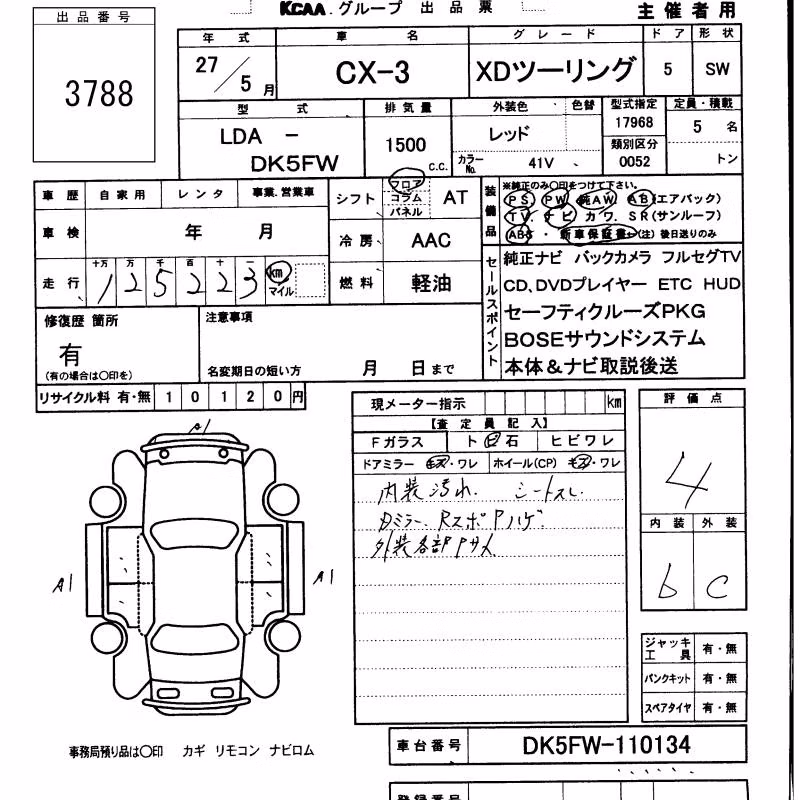 KCAA.グループ 出品票
主催者用
出品番号
3788
年式 車名 グレード ドア 形状
27/5月 CX-3 XDツーリング 5 SW
型式 排気量 外装色 色替 型式指定 定員・積載
LDA - DK5FW
1500 c.c.
レッド
カラーNo. 41V
17968
類別区分
0052
5名
トン
車歴 自家用 レンタ 事業.営業車
車検 年 月
走行 十万 万 千 百 十 一
125223 km マイル
シフト フロア コラム パネル AT
冷房 AAC
燃料 軽油
装備品
※純正のみ○印をつけて下さい。
PS PW 純AW AB(エアバック)
TV. ナビ カワ. SR(サンルーフ)
ABS・新車保証書←(注)後日送りのみ
セールスポイント
純正ナビ バックカメラ フルセグTV
CD、DVDプレイヤー ETC HUD
セーフティクルーズPKG
BOSEサウンドシステム
本体&ナビ取説後送
修復歴 箇所
有
(有の場合は○印を)
注意事項
名変期日の短い方 月 日まで
リサイクル料 有・無 10120円
現メーター指示 km
【査定員記入】
Fガラス ト 日 石 ヒビワレ
ドアミラー キズ・ワレ ホイール(CP) キズ・ワレ
内装汚れ. シートスレ
Dミラー、RスポPハゲ
外装各部Pサメ
評価点
4
内装 外装
b C
A1
A1
A1
ジャッキ工具 有・無
パンクキット 有・無
スペアタイヤ 有・無
事務局預り品は○印 カギ リモコン ナビロム
車台番号 DK5FW-110134
登録番号